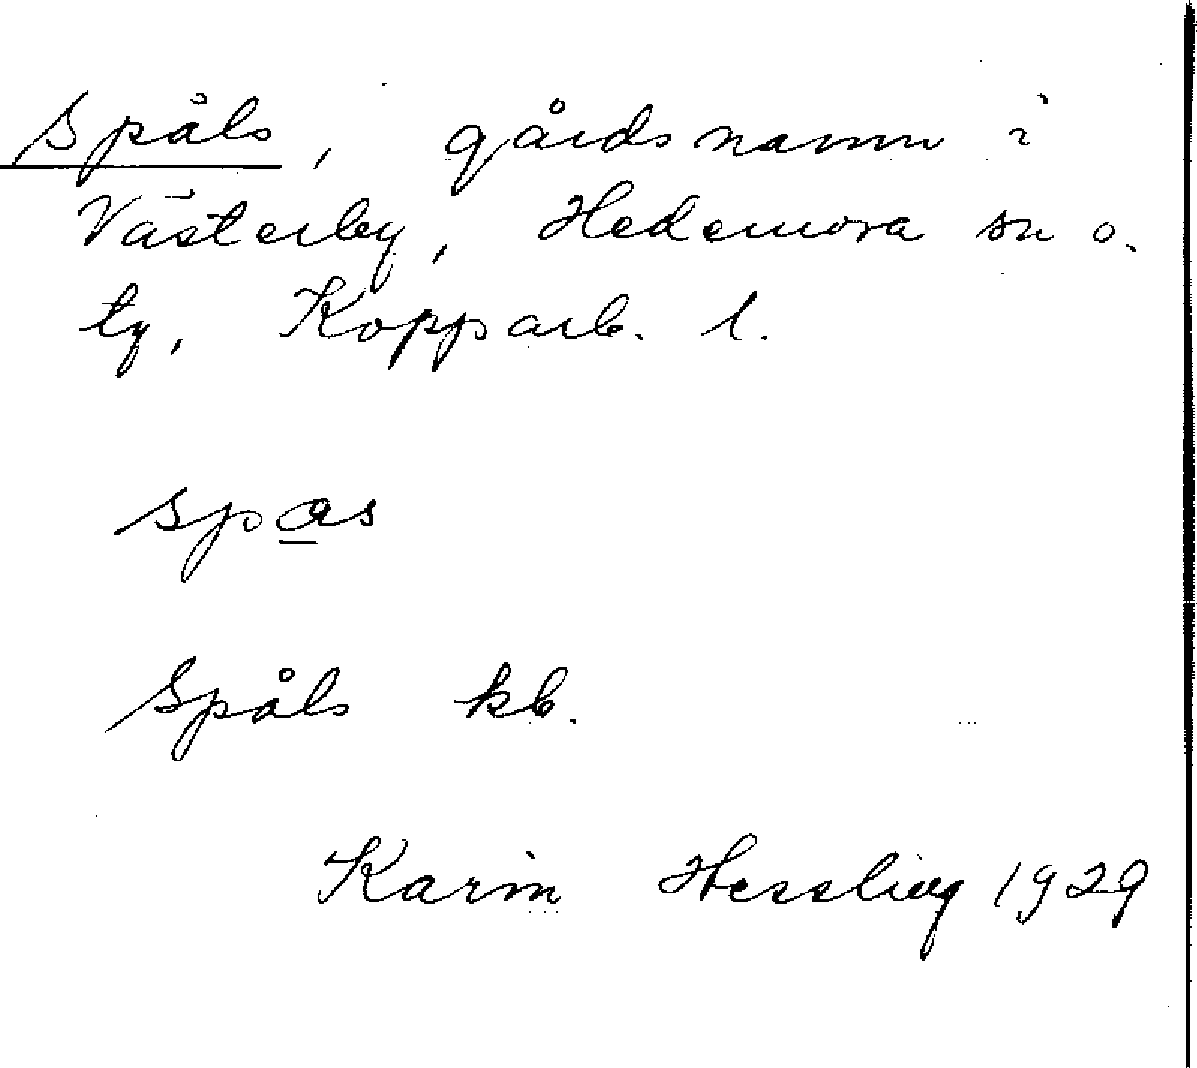 Spåls, gårdsnamn i
Västerby, Hedemora sn o.
tg, Kopparb. l.
spas
Spåls kb.
Karin Hessling 1929